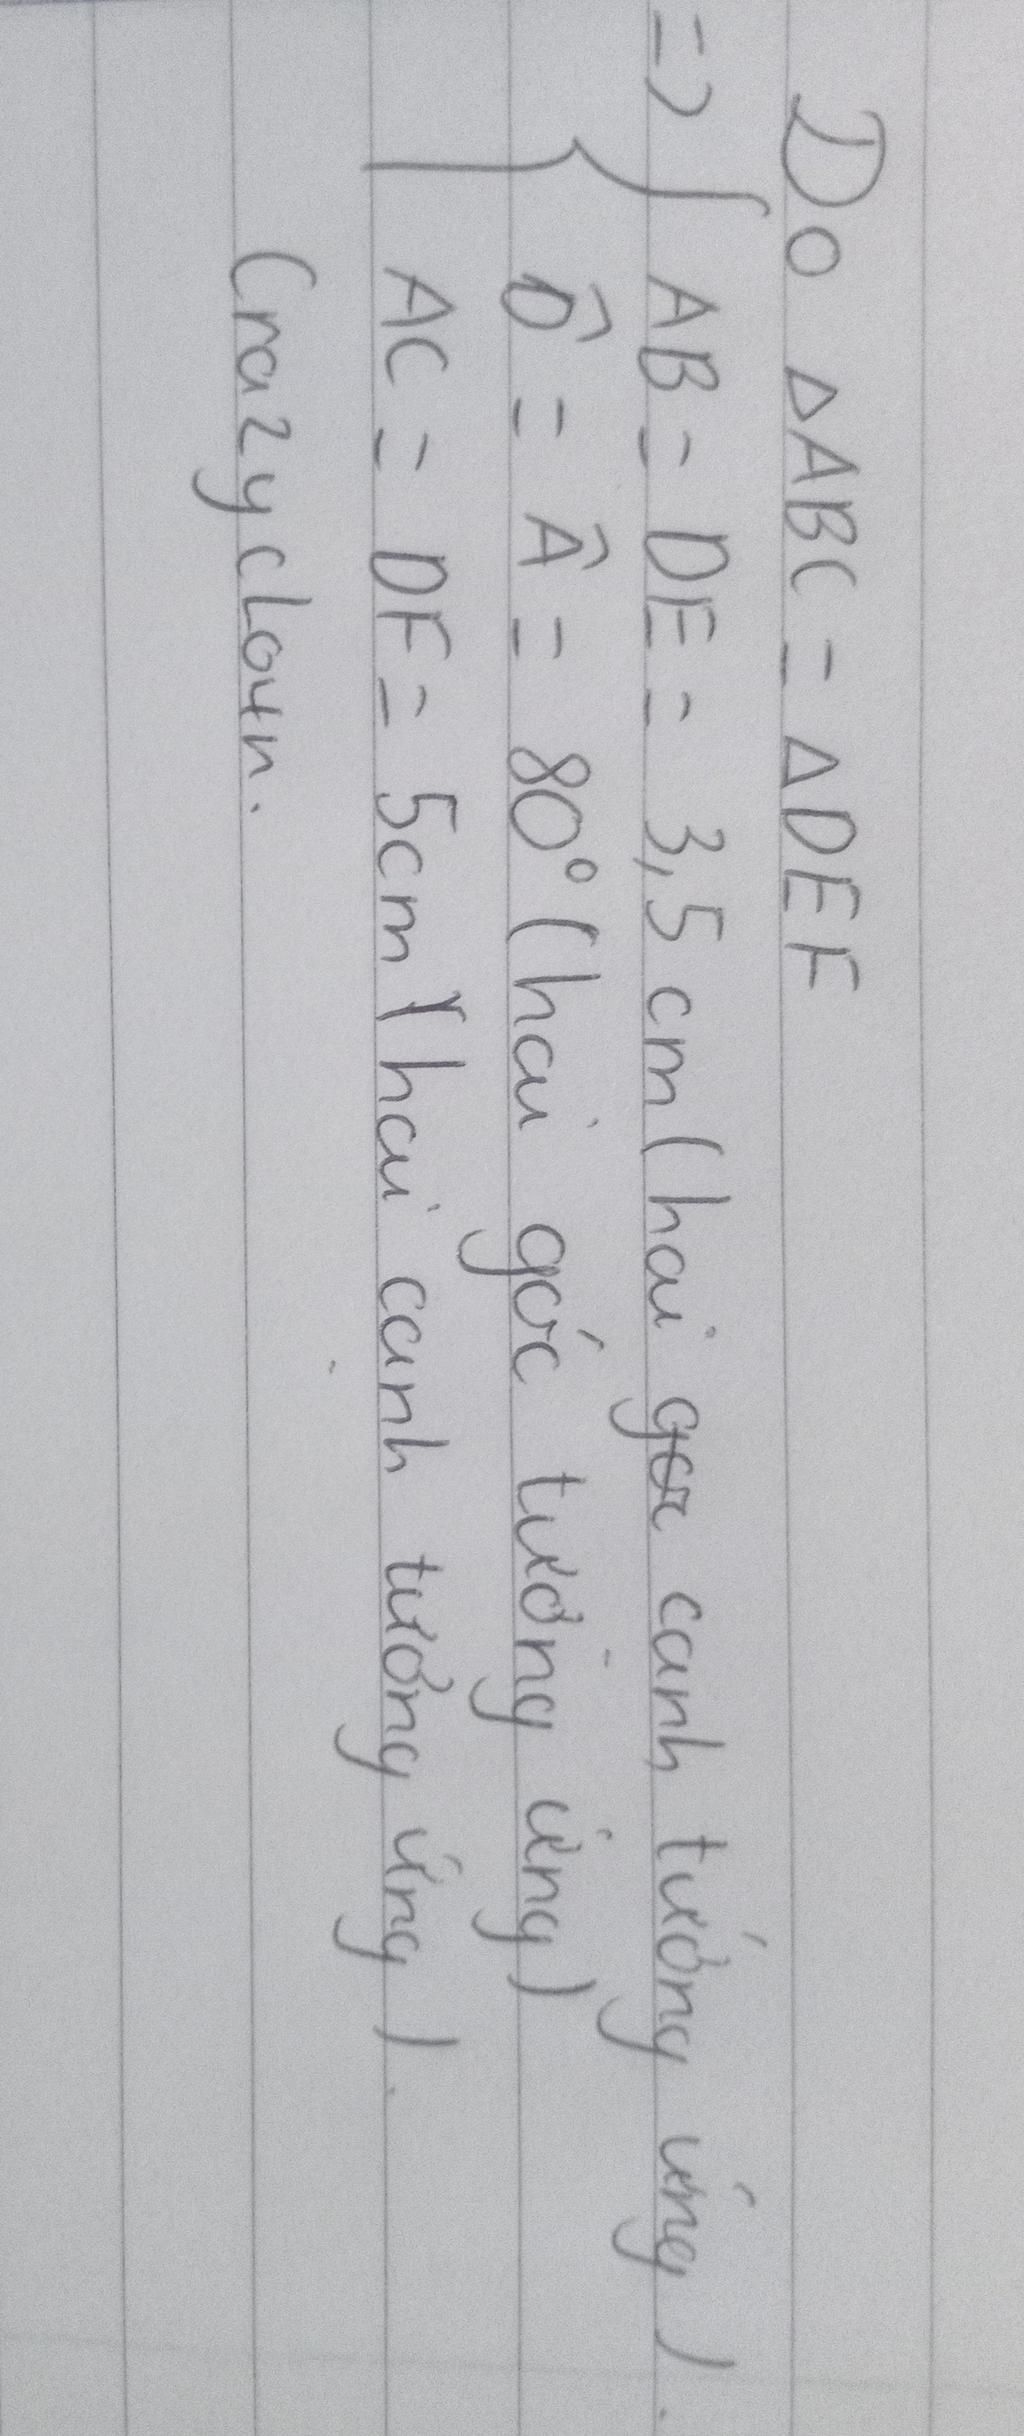 Do ΔABC = ΔDEF
=> { AB = DE = 3,5 cm (hai canh tướng ứng).
D̂ = Â = 80° (hai góc tường ứng)
AC = DF = 5cm (hai canh tương ứng).
Crazy clown.